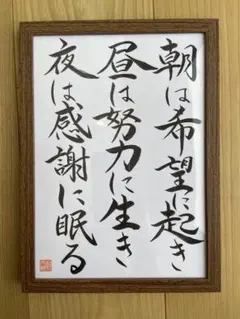 朝は希望に起き
昼は努力に生き
夜は、感謝に眠る